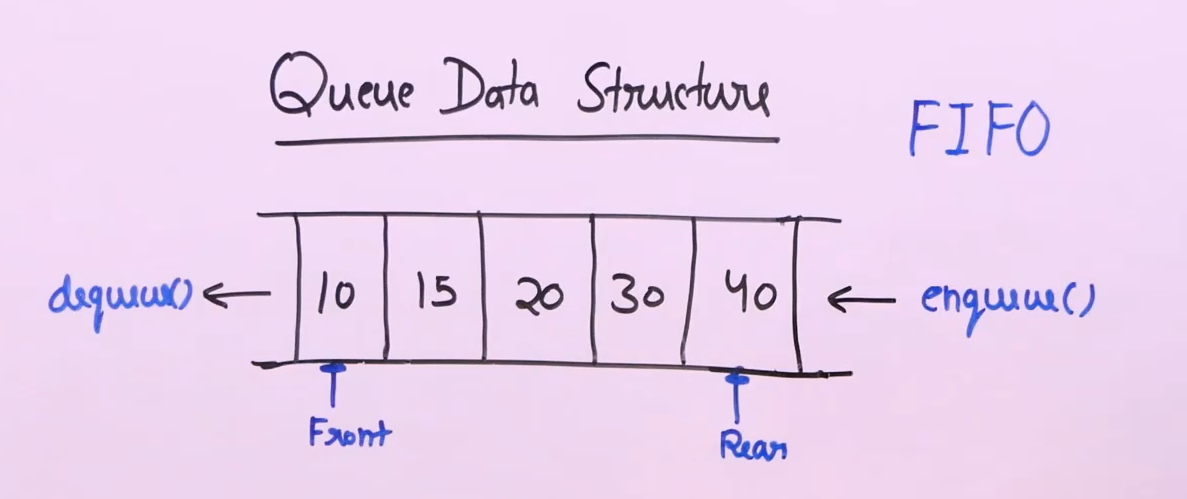 Queue Data Structure
FIFO
dequeue() 10 15 20 30 40 enqueue()
Front
Rear